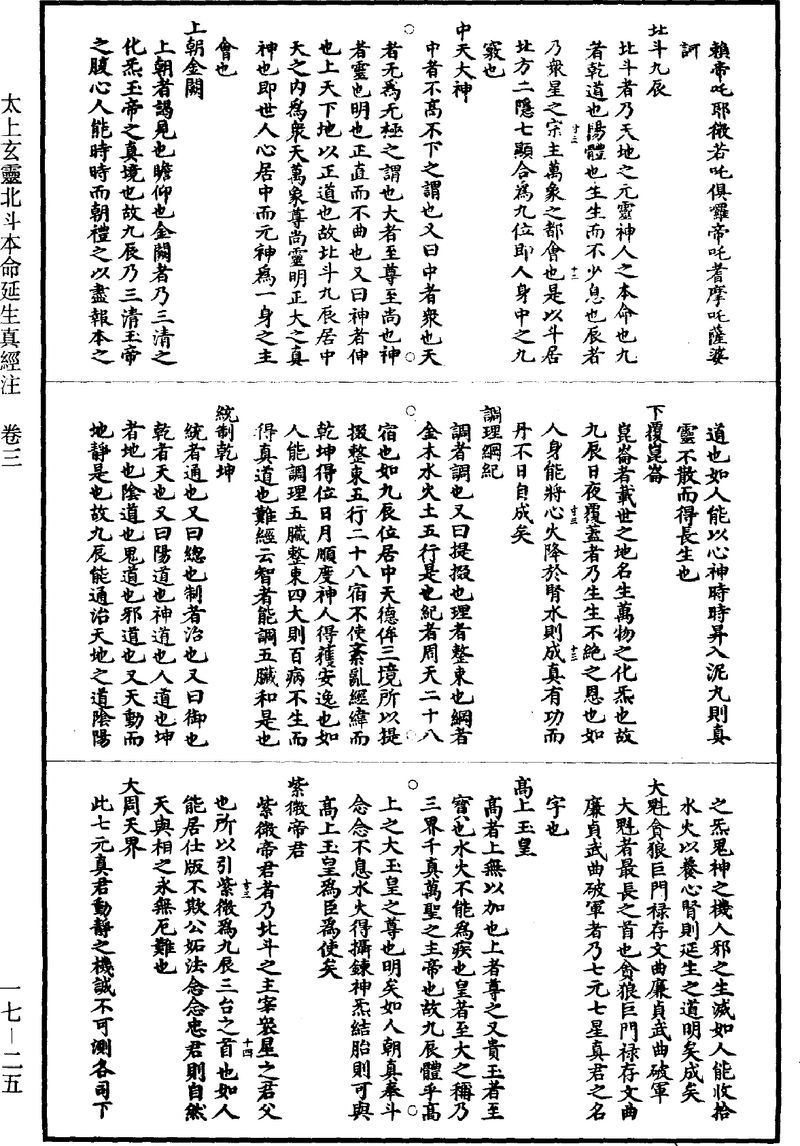 賴帝吒耶微若吒俱囉帝吒耆摩吒薩婆
訶
北斗九辰
北斗者乃天地之元靈神人之本命也九
者乾道也陽體也生生而不少息也辰者
乃衆星之宗主萬象之都會也是以斗居
北方二隱七顯合為九位即人身中之九
竅也
中天大神
中者不高不下之謂也又曰中者衆也天
者无為无極之謂也大者至尊至尚也神
者靈也明也正直而不曲也又曰神者伸
也上天下地以正道也故北斗九辰居中
天之內為衆天萬象尊尚靈明正大之真
神也即世人心居中而元神為一身之主
會也
上朝金闕
上朝者謁見也瞻仰也金闕者乃三清之
化炁玉帝之真境也故九辰乃三清玉帝
之腹心人能時時而朝禮之以盡報本之
道也如人能以心神時時昇入泥丸則真
靈不散而得長生也
下覆崑崙
崑崙者載世之地名生萬物之化炁也故
九辰日夜覆蓋者乃生生不絶之恩也如
人身能將心火降於腎水則成真有功而
丹不日自成矣
調理綱紀
調者調也又曰提掇也理者整束也綱者
金木水火土五行是也紀者周天二十八
宿也如九辰位居中天德侔三境所以提
掇整束五行二十八宿不使紊亂經緯而
乾坤得位日月順度神人得獲安逸也如
人能調理五臟整束四大則百病不生而
得真道也難經云智者能調五臟和是也
統制乾坤
統者通也又曰緫也制者治也又曰御也
乾者天也又曰陽道也神道也人道也坤
者地也陰道也鬼道也邪道也又天動而
地靜是也故九辰能通治天地之道陰陽
之炁鬼神之機人邪之生滅如人能收拾
水火以養心腎則延生之道明矣成矣
大魁貪狼巨門祿存文曲廉貞武曲破軍
大魁者最長之首也貪狼巨門祿存文曲
廉貞武曲破軍者乃七元七星真君之名
字也
高上玉皇
高者上無以加也上者尊之又貴玉者至
寶也水火不能為疾也皇者至大之稱乃
三界千真萬聖之主帝也故九辰體乎高
上之大玉皇之尊也明矣如人朝真奉斗
念念不息水火得攝鍊神炁結胎則可與
高上玉皇為臣為使矣
紫微帝君
紫微帝君者乃北斗之主宰衆星之君父
也所以引紫微為九辰三台之首也如人
能居仕版不欺公妬法念念忠君則自然
天與相之永無厄難也
大周天界
此七元真君動靜之機誠不可測各司下
太上玄靈北斗本命延生真經注 卷三
一七－二五